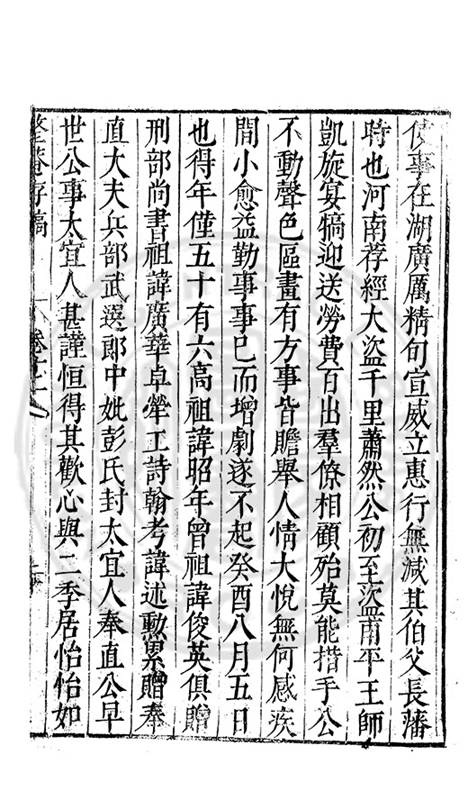 使事在湖廣厲精旬宣威立惠行無減其伯父長藩
時也河南荐經大盜千里蕭然公初至盜甫平王師
凱旋宴犒迎送勞費百出羣僚相顧殆莫能措手公
不動聲色區畫有方事皆贍舉人情大悅無何感疾
閒小愈益勤事事已而增劇遂不起癸酉八月五日
也得年僅五十有六高祖諱昭年曾祖諱俊英俱贈
刑部尚書祖諱廣華卓犖工詩翰考諱述勳累贈奉
直大夫兵部武選郎中妣彭氏封太宜人奉直公早
世公事太宜人甚謹恒得其歡心與二季居怡怡如
整菴存稿 卷十二